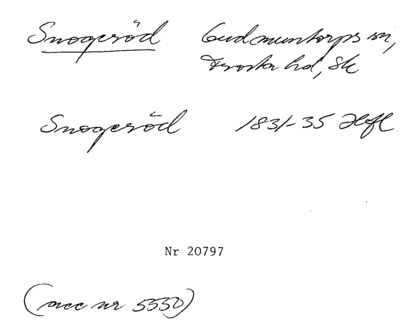 Snogeröd Gudmuntorps sn,
Frosta hd, Sk
Snogeröd 1831-35 Hfl
Nr 20797
(acc nr 5550)